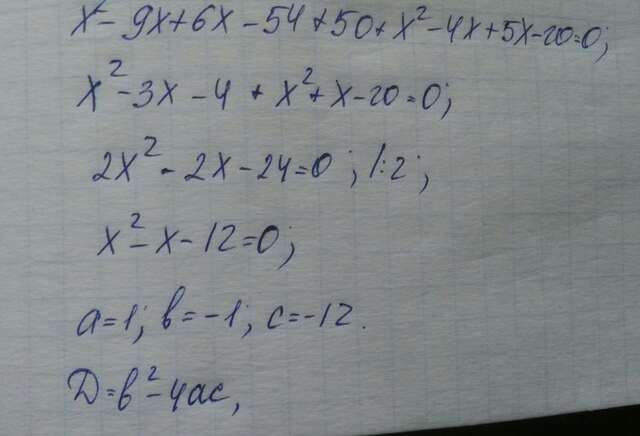 x² - 9x + 6x - 54 + 50 + x² - 4x + 5x - 20 = 0;
x² - 3x - 4 + x² + x - 20 = 0;
2x² - 2x - 24 = 0; |:2;
x² - x - 12 = 0;
a = 1; b = -1; c = -12.
D = b² - 4ac,